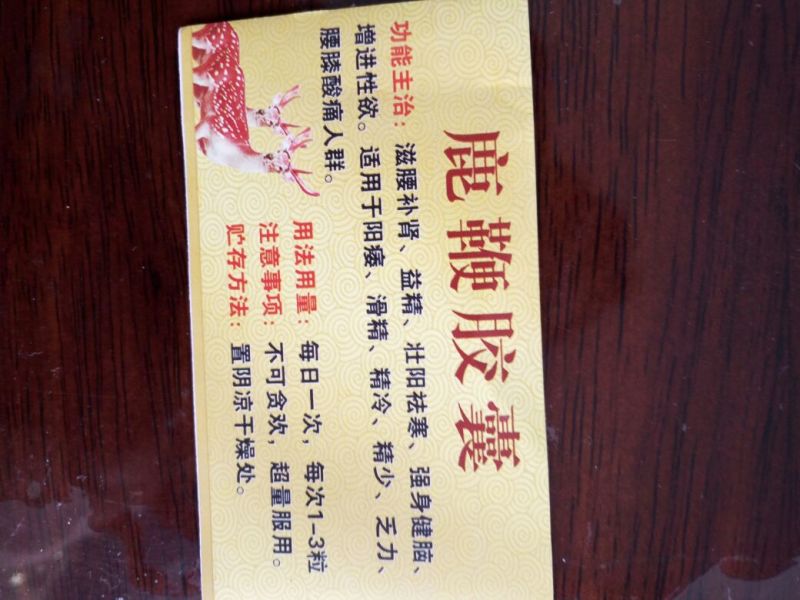 鹿鞭胶囊
功能主治：滋腰补肾、益精、壮阳祛寒、强身健脑、
增进性欲。适用于阳痿、滑精、精冷、精少、乏力、
腰膝酸痛人群。
用法用量：每日一次，每次1-3粒
注意事项：不可贪欢，超量服用。
贮存方法：置阴凉干燥处。